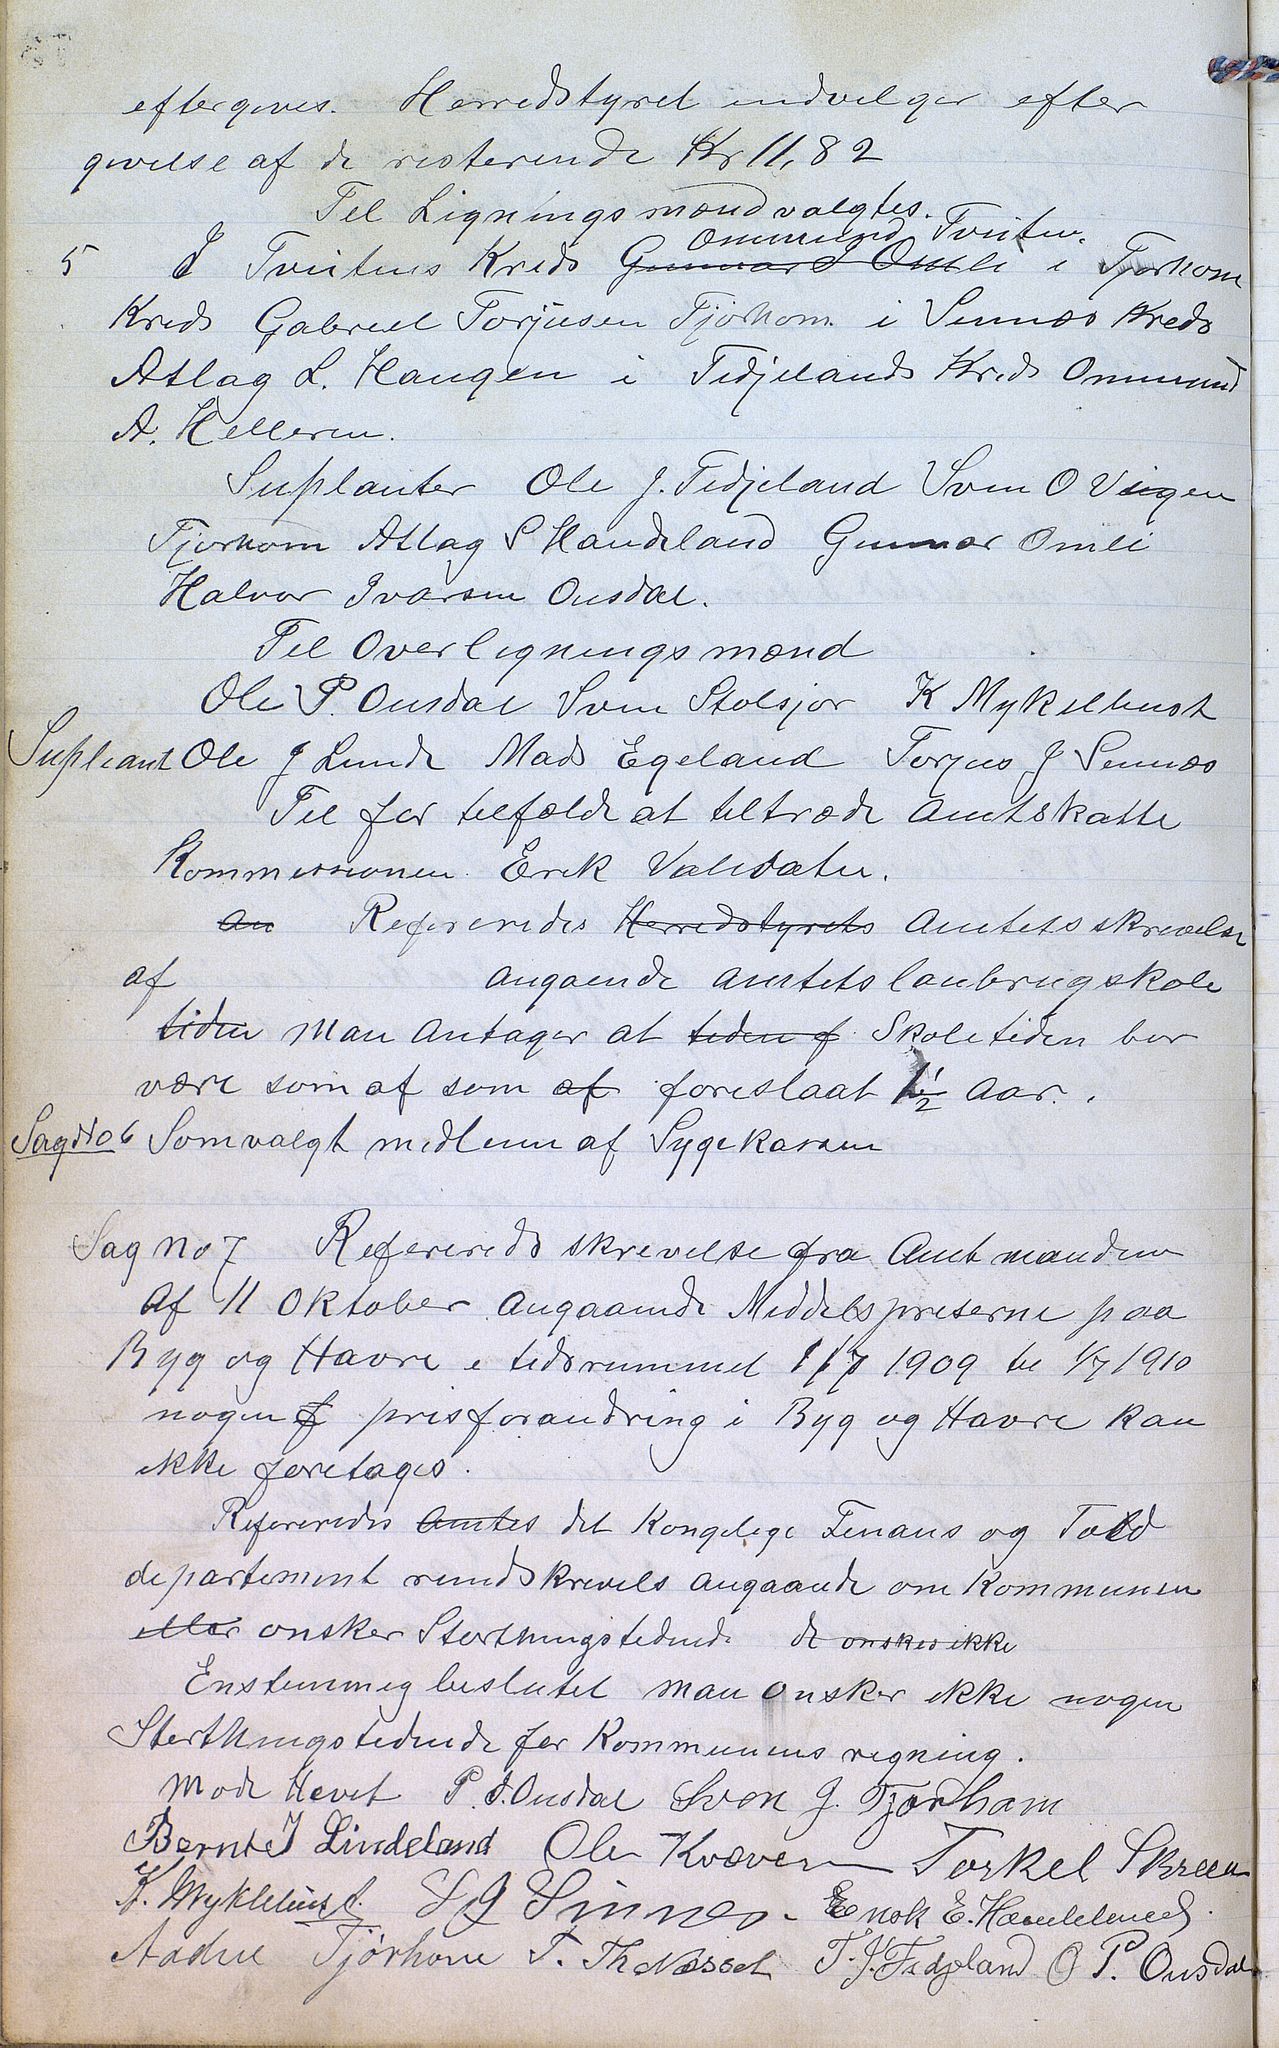 eftergives. Herredstyret indvelger efter
givelse af de resterende Kr 11,82
Til Ligningsmænd valgtes.
Ommund Tveiten.
5 I Tveitens Kreds Gunnar J Omli i Tjørhom
Kreds Gabriel Torjusen Tjørhom i Sennæs Kreds
Atlag L. Haugen i Fedjelands Kreds Ommund
A. Helleren.
Suplanter Ole J. Fedjeland Sven O
Tjorhom Atlag S Haudeland Gunnar Omli
Halvor Ivarsen Ousdal.
Til Overligningsmænd
Ole P. Ousdal Sven Stolsjor K Mykelbust
Supleant Ole J Lunde Mads Egeland Torjus J Sennæs
Til for telfælde at tiltræde Amtskatte
Kommissionen Erik
an Refereredes Herredstyrets Amtets skrevelse
af angaende amtets lanbrugskole
tiden Man antager at tiden f Skoletiden bor
være som af som af foreslaat 1½ Aar.
Sag No 6 Somvalgt medlem af Sygekassen
Sag No 7 Referereds skrevelse fra Amtmanden
af 11 Oktober angaaende Middelspriserne paa
Byg og Havre i tidsrummet 1/7 1909 te 1/7 1910
nogen f prisforandring i Byg og Havre kan
ikke foretages.
Refereredes Amtes det Kongelige Finans og Told
departement rundskrevels angaande om Kommunen
eller onsker Storthingstedende de onskes ikke
Enstemmeg beslutet man onsker ikke nogen
Storthingstedende for Kommunens regning.
Mode Hevet P. J. Ousdal Sven J. Tjørham
Bernt J Lindeland Ole Kvæven Torkel Skreen
K. Myklebust. S J Sinnes. Enok E. Haudeland.
Aadne Tjørhom T. Th Nesset T. J. Fedjeland O P. Ousdal